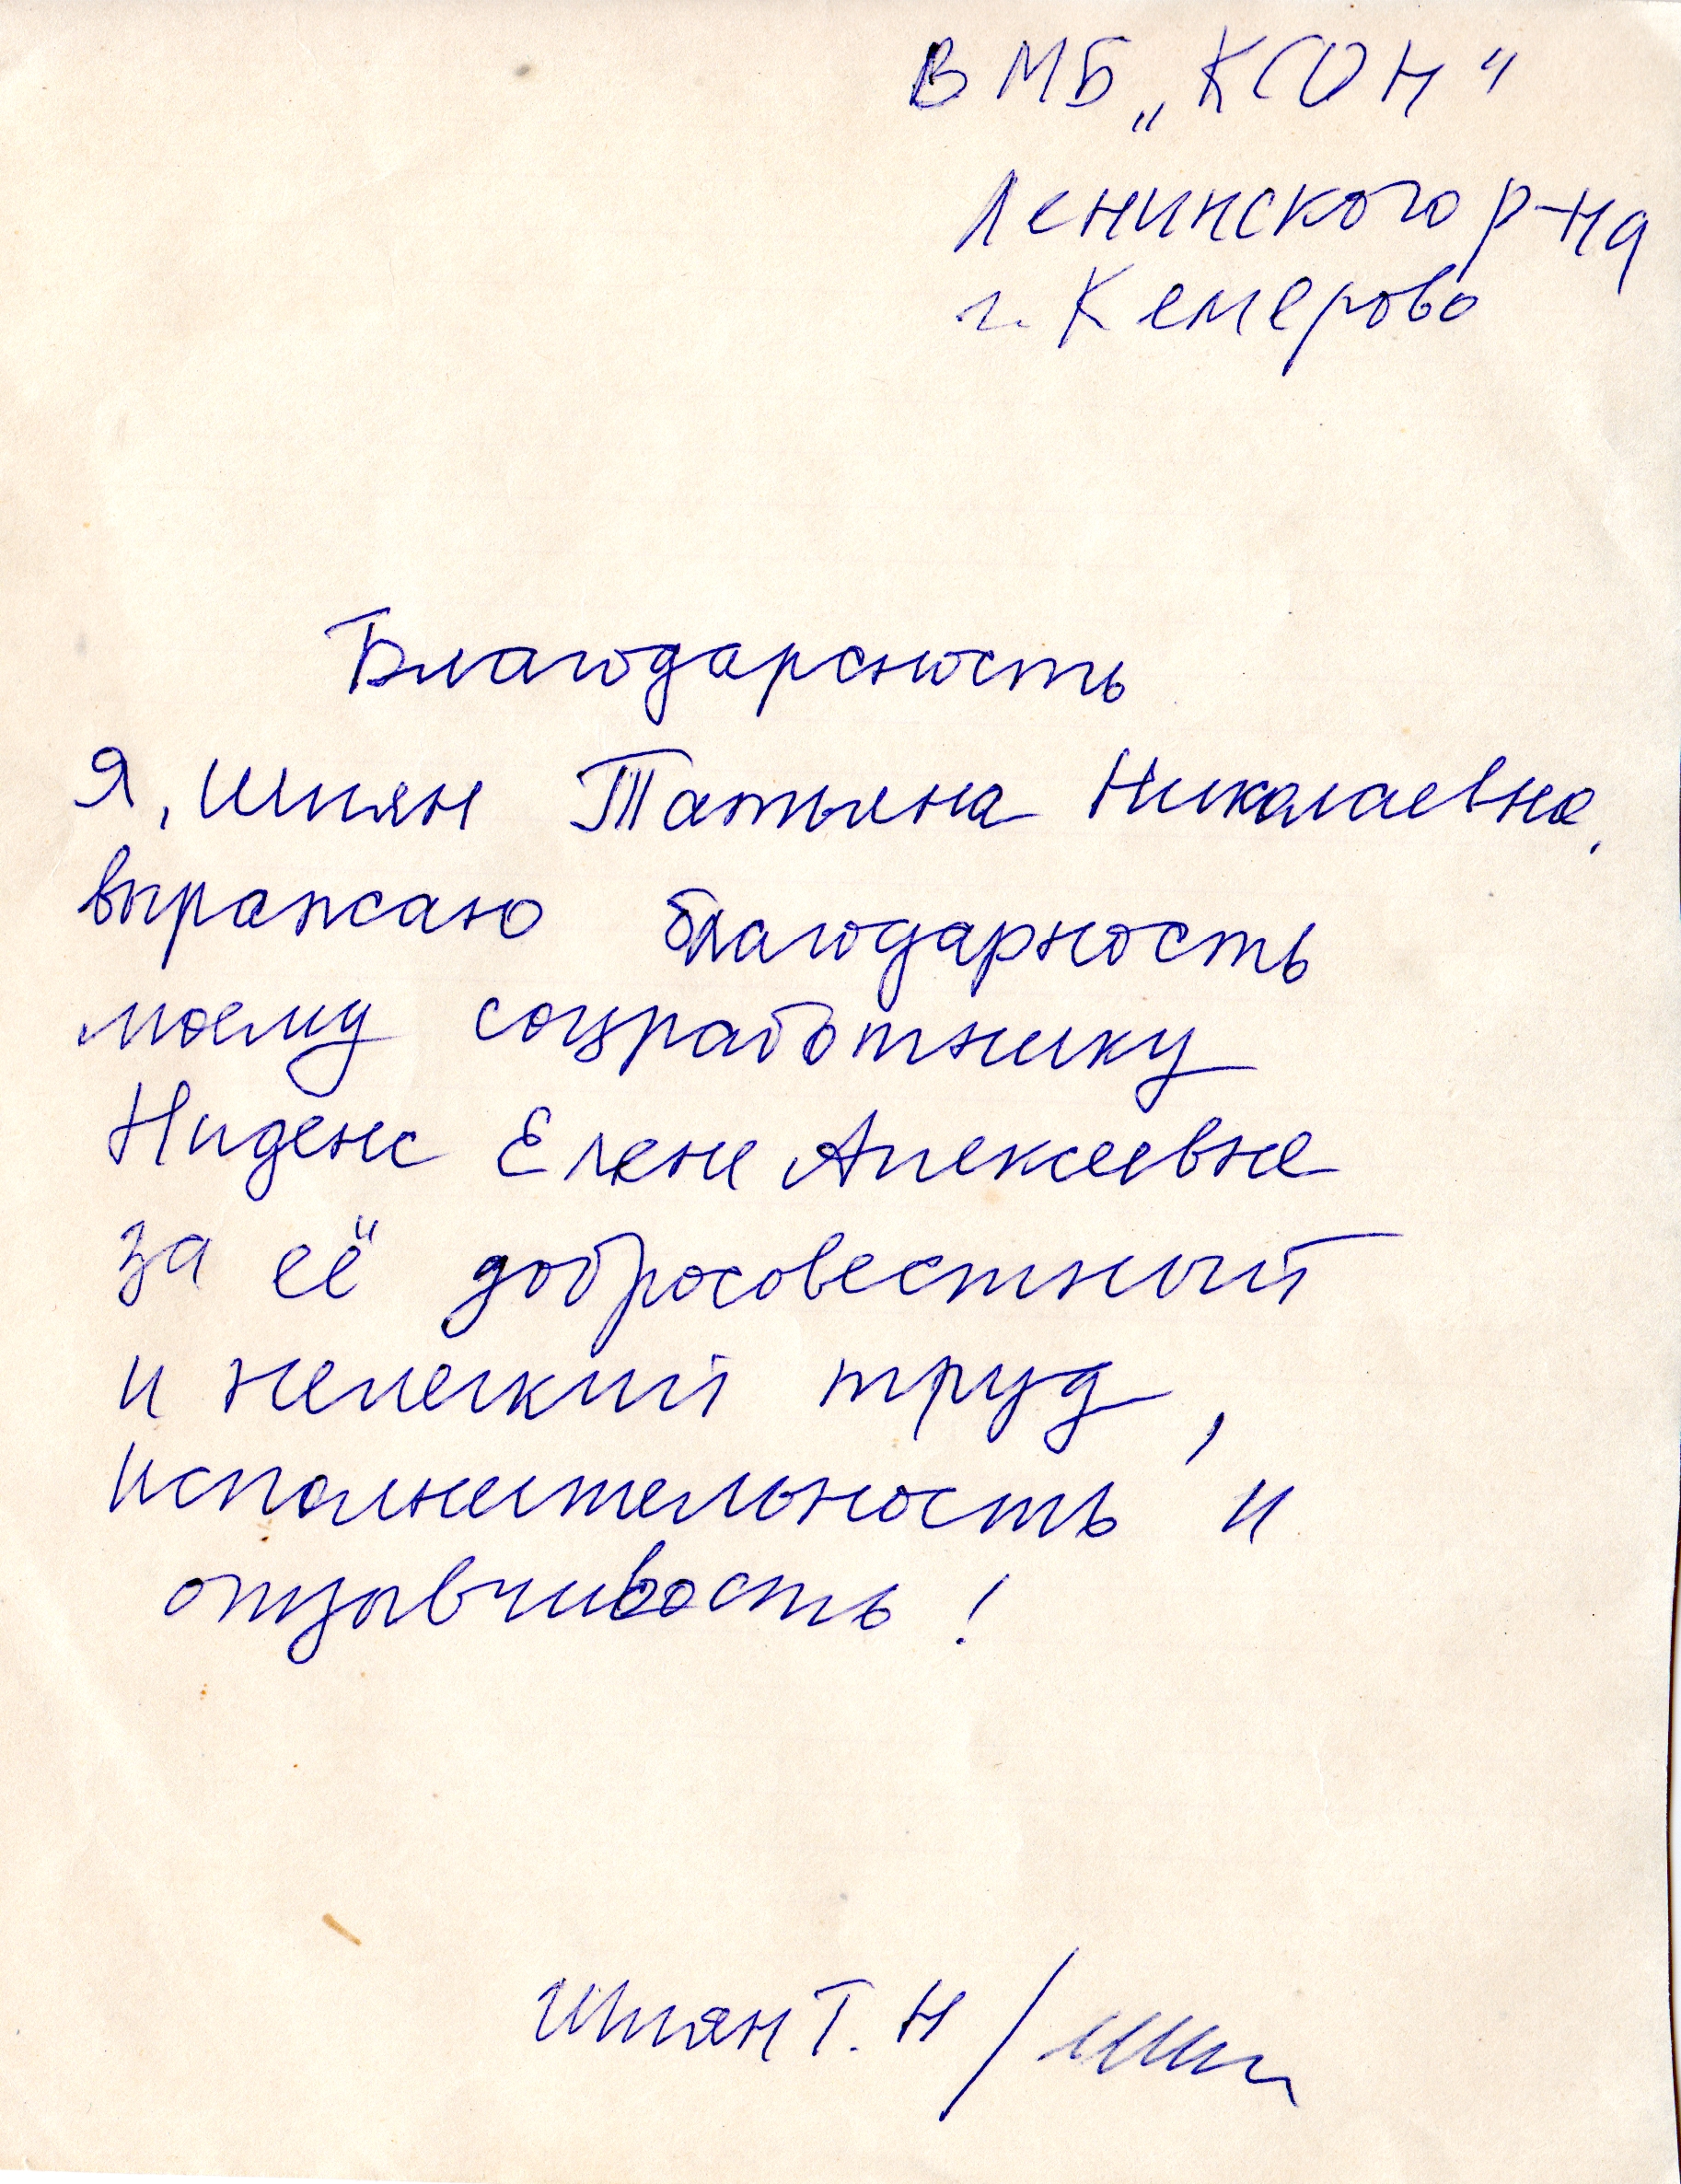 В МБ „КСОН"
Ленинского р-на
г. Кемерово
Благодарсность
Я, Шиян Татьяна Николаевна,
выражаю благодарность
моему соцработнику
Елене Алексеевне
за её добросовестный
и нелегкий труд,
исполнительность и
отзывчивость!
Шиян Т. Н /